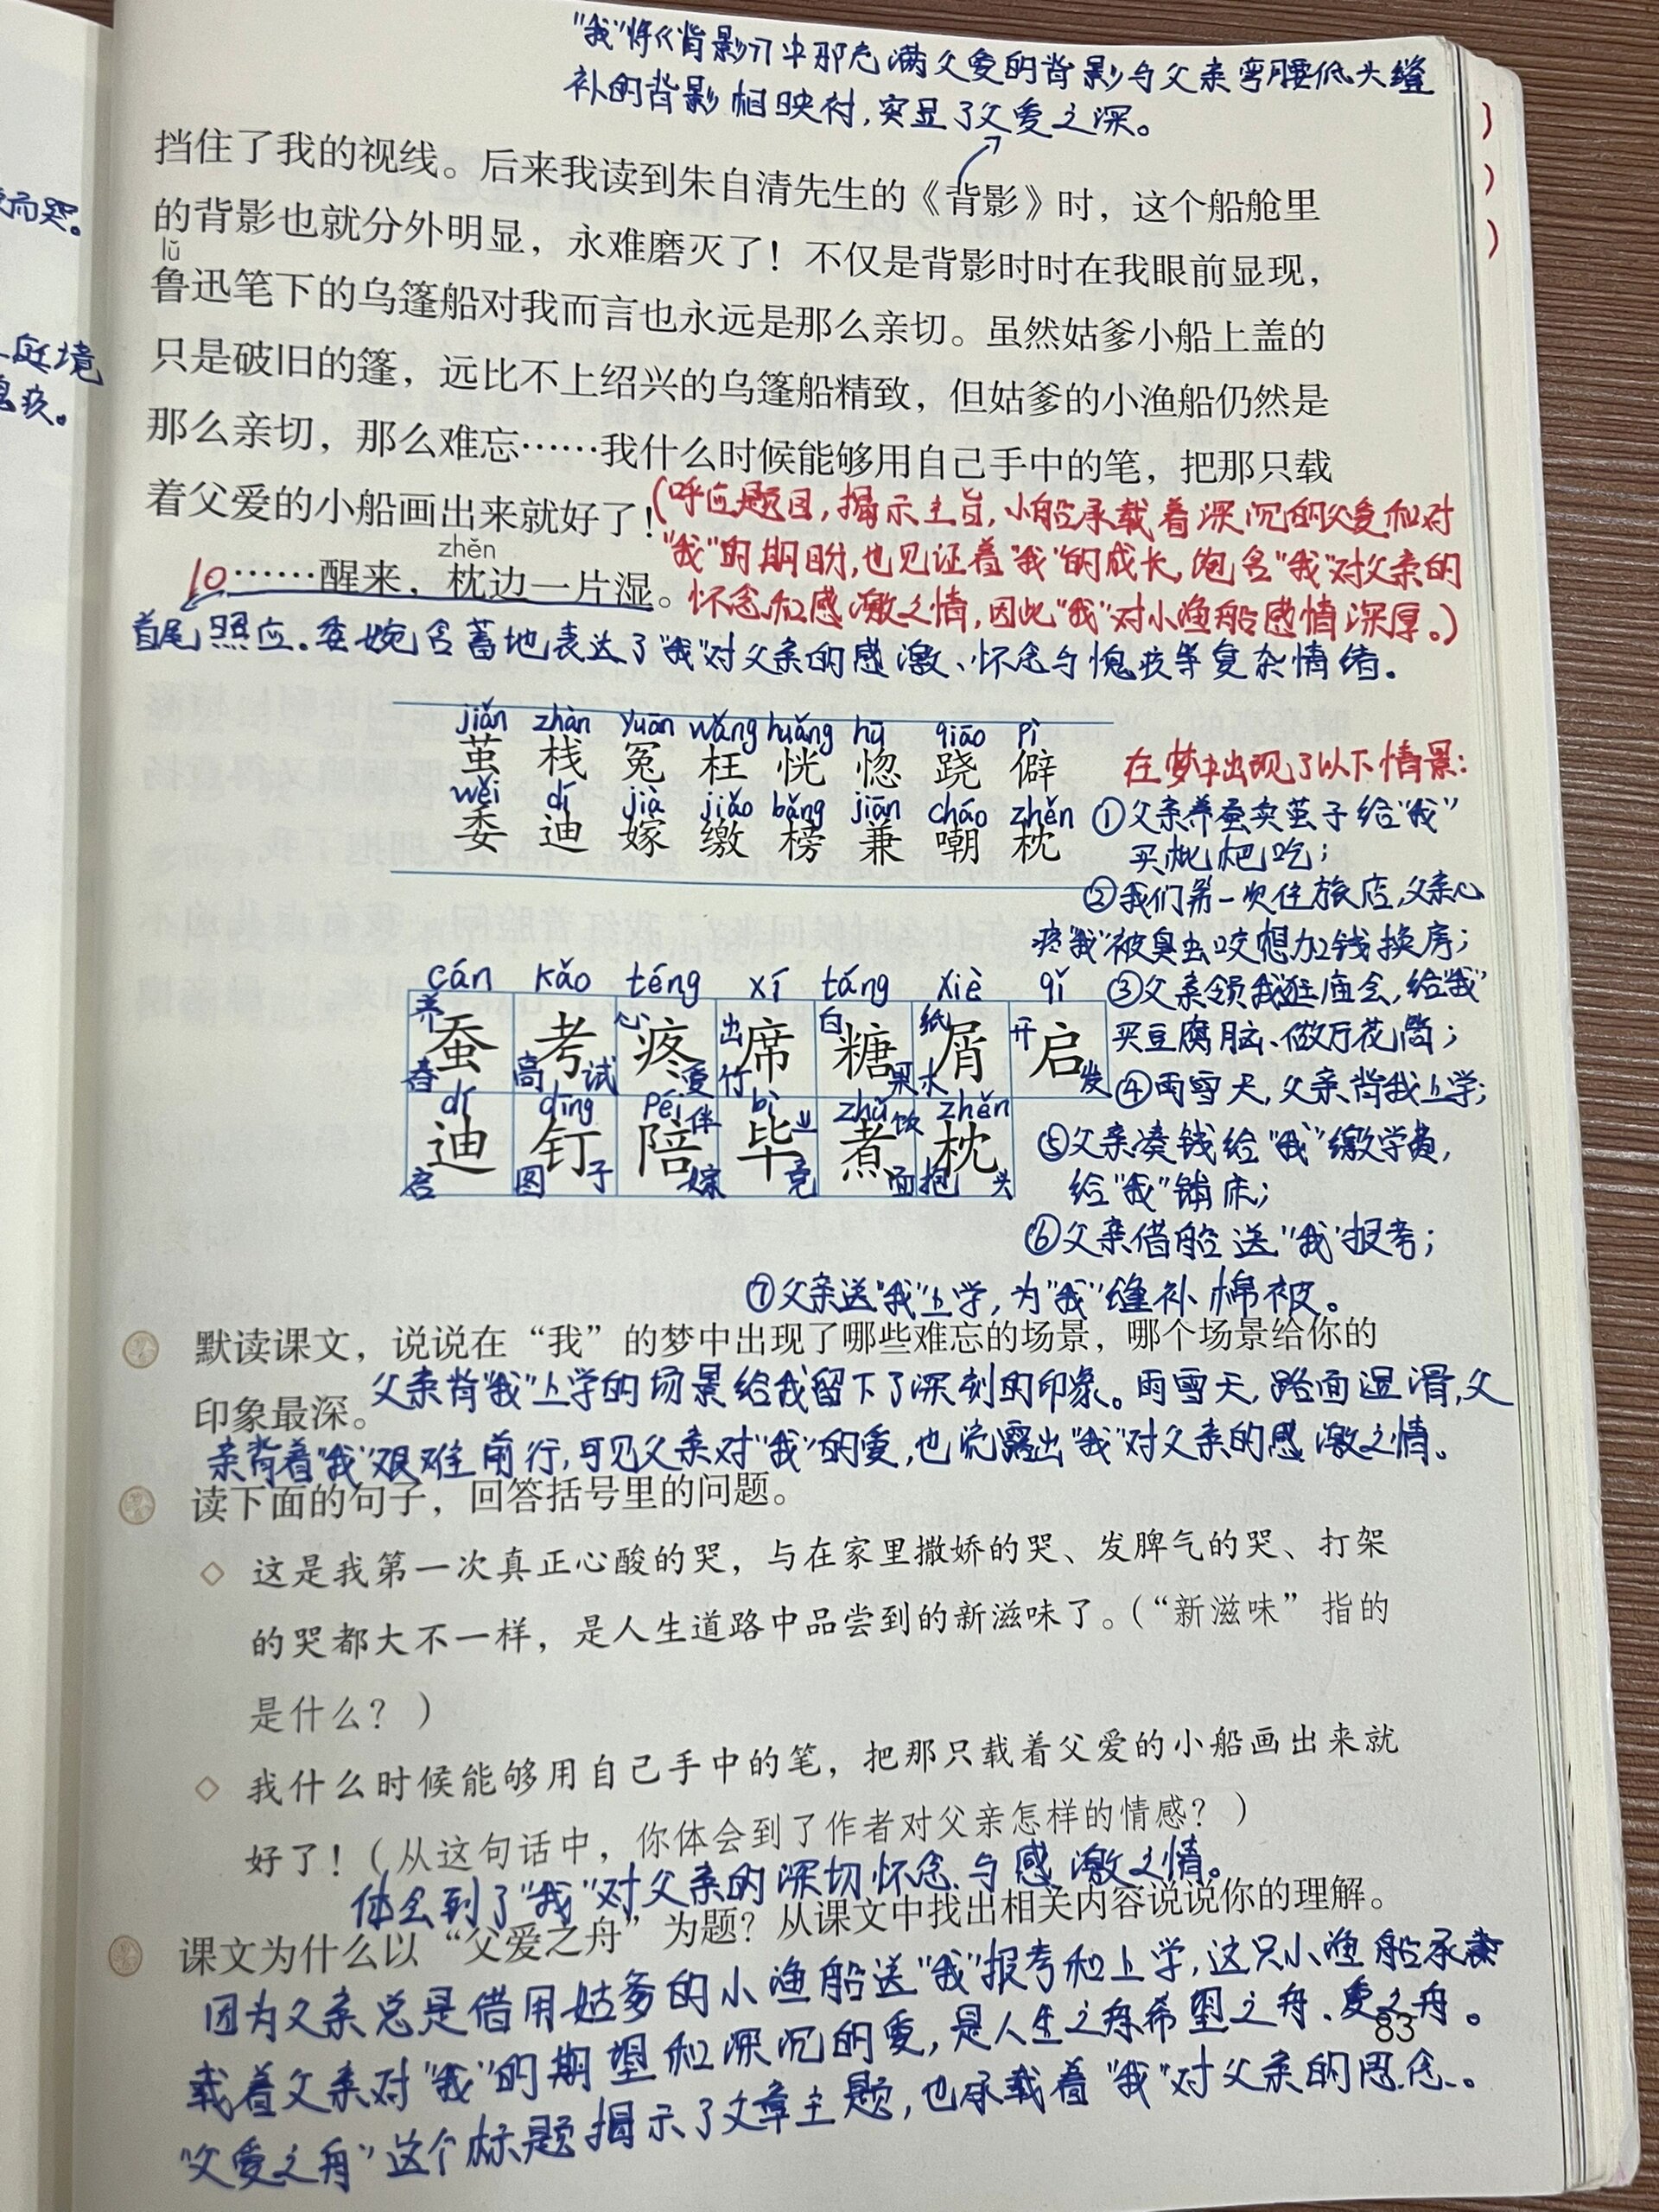 "我"将《背影》中那充满父爱的背影与父亲弯腰低头缝
补的背影相映衬，突显了父爱之深。
挡住了我的视线。后来我读到朱自清先生的《背影》时，这个船舱里
的背影也就分外明显，永难磨灭了！不仅是背影时时在我眼前显现，
lǔ
鲁迅笔下的乌篷船对我而言也永远是那么亲切。虽然姑爹小船上盖的
只是破旧的篷，远比不上绍兴的乌篷船精致，但姑爹的小渔船仍然是
那么亲切，那么难忘……我什么时候能够用自己手中的笔，把那只载
着父爱的小船画出来就好了！
(呼应题目，揭示主旨，小船承载着深沉的父爱和对
"我"的期盼，也见证着"我"的成长，饱含"我"对父亲的
怀念和感激之情，因此"我"对小渔船感情深厚。)
zhěn
10……醒来，枕边一片湿。
首尾照应。委婉含蓄地表达了"我"对父亲的感激、怀念与愧疚等复杂情绪。
而哭。
庭境
疚。
jiǎn zhàn yuān wǎng huǎng hū qiāo pì
茧 栈 冤 枉 恍 惚 跷 僻
wěi dí jià jiǎo bǎng jiān cháo zhěn
委 迪 嫁 缴 榜 兼 嘲 枕
在梦中出现了以下情景：
①父亲养蚕卖茧子给"我"
买枇杷吃；
②我们第一次住旅店，父亲心
疼"我"被臭虫咬想加钱换房；
③父亲领我逛庙会，给"我"
买豆腐脑、做万花筒；
④雨雪天，父亲背我上学；
⑤父亲凑钱给"我"缴学费，
给"我"铺床；
⑥父亲借船送"我"报考；
⑦父亲送"我"上学，为"我"缝补棉被。
cán kǎo téng xí táng xiè qǐ
养 心 出 白 纸 开
蚕 考 疼 席 糖 屑 启
春 高 试 爱 竹 果 木 发
dí dīng péi bì zhǔ zhěn
伴 业 饮
迪 钉 陪 毕 煮 枕
启 图 子 嫁 竟 面 抱 头
默读课文，说说在“我”的梦中出现了哪些难忘的场景，哪个场景给你的
印象最深。
父亲背"我"上学的场景给我留下了深刻的印象。雨雪天，路面湿滑，父
亲背着"我"艰难前行，可见父亲对"我"的爱，也流露出"我"对父亲的感激之情。
读下面的句子，回答括号里的问题。
◇ 这是我第一次真正心酸的哭，与在家里撒娇的哭、发脾气的哭、打架
的哭都大不一样，是人生道路中品尝到的新滋味了。（“新滋味”指的
是什么？）
◇ 我什么时候能够用自己手中的笔，把那只载着父爱的小船画出来就
好了！（从这句话中，你体会到了作者对父亲怎样的情感？）
体会到了"我"对父亲的深切怀念与感激之情。
课文为什么以“父爱之舟”为题？从课文中找出相关内容说说你的理解。
因为父亲总是借用姑爹的小渔船送"我"报考和上学，这只小渔船承
载着父亲对"我"的期望和深沉的爱，是人生之舟、希望之舟、爱之舟。
83
"父爱之舟"这个标题揭示了文章主题，也承载着"我"对父亲的思念。